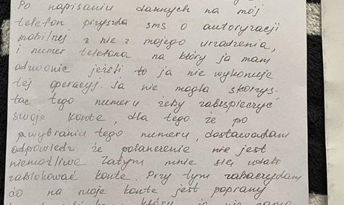 Po napisaniu dannych na mój
telefon przyszła sms o autoryzacji
mobilnej z nie z mojego urządzenia,
i numer telefona na który ja mam
dzwonić jeżeli to ja nie wykonuję
tej operacji. Ja nie mogła skorzys-
tać tego numeru żeby zabezpieczyć
swoje konto, dla tego że po
wybraniu tego numeru, dostawałam
odpowiedź że połączenie nie jest
niemożliwe. Zatym mnie się udało
zablokować konto. Przy tym zobaczyłam
co na moje konto jest
który ja nie